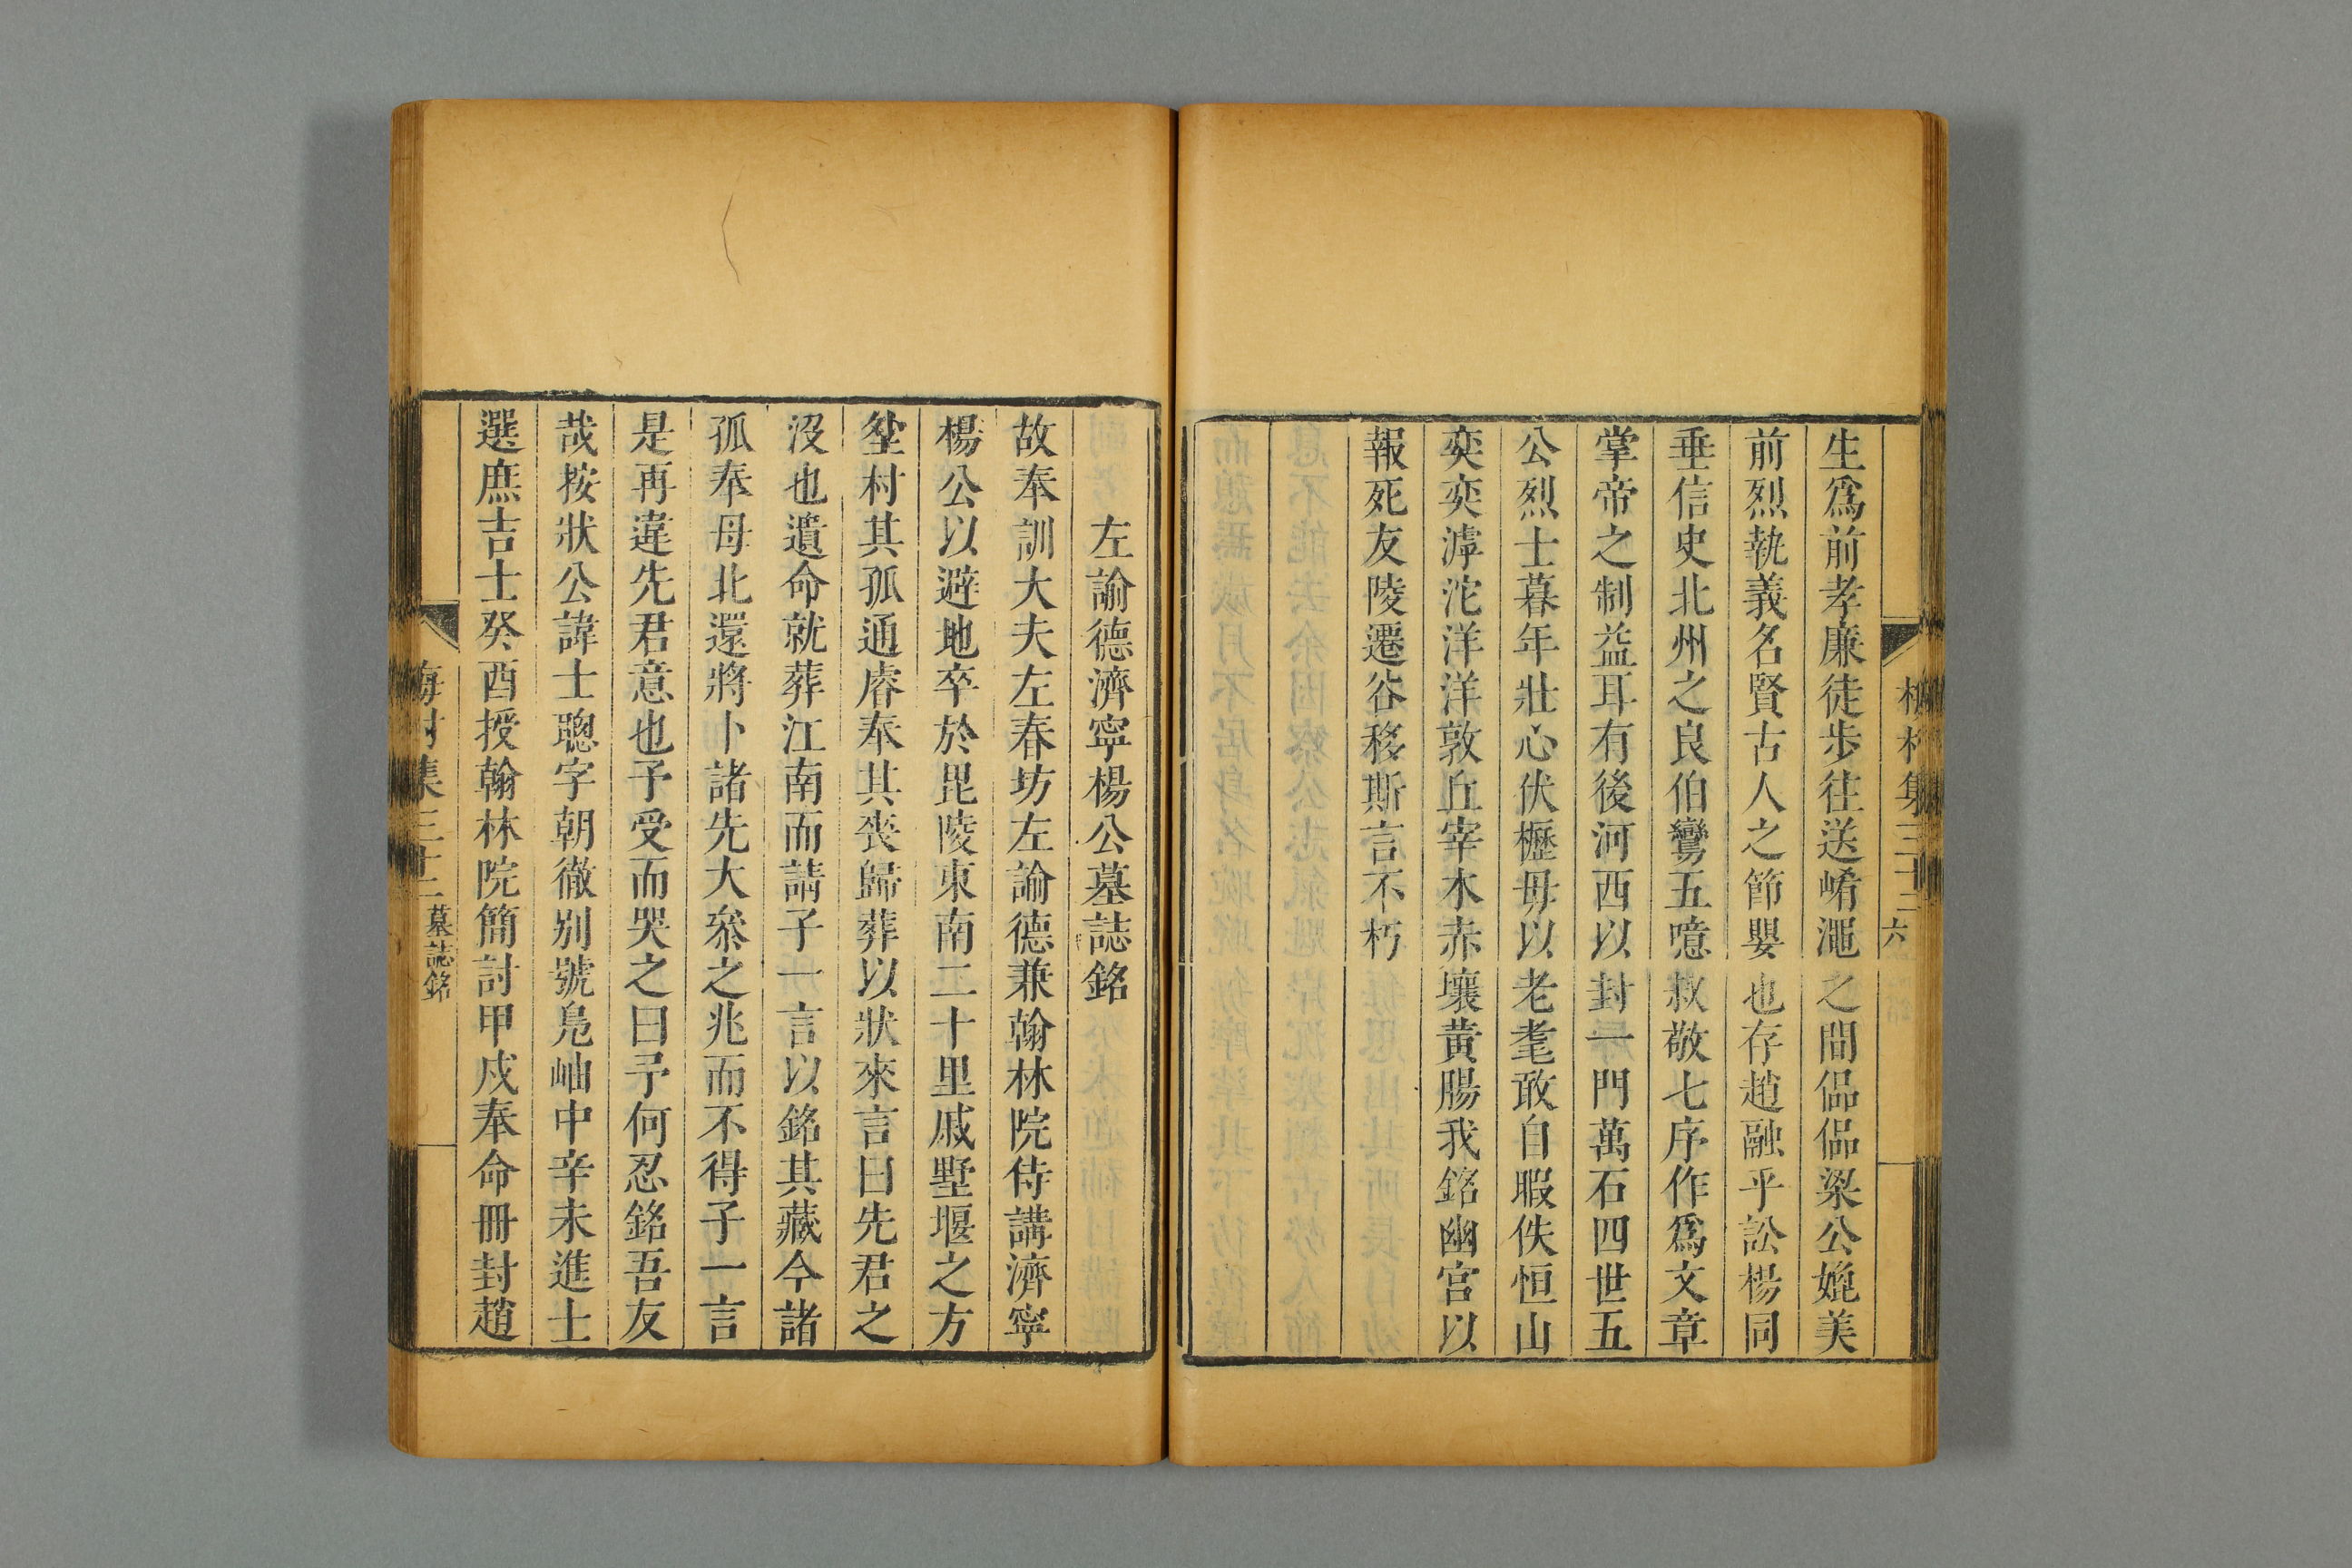 生爲前孝廉徒步往送崤澠之間侃侃梁公媲美
前烈執義名賢古人之節嬰也存趙融乎訟楊同
垂信史北州之良伯鸞五噫叔敬七序作爲文章
掌帝之制益耳有後河西以封一門萬石四世五
公烈士暮年壯心伏櫪毋以老耄敢自暇佚恒山
奕奕滹沱洋洋敦丘宰木赤壤黃腸我銘幽宮以
報死友陵遷谷移斯言不朽
左諭德濟寧楊公墓誌銘
故奉訓大夫左春坊左諭德兼翰林院侍講濟寧
楊公以避地卒於毘陵東南二十里戚墅堰之方
坌村其孤通睿奉其喪歸葬以狀來言曰先君之
沒也遺命就葬江南而請子一言以銘其藏今諸
孤奉母北還將卜諸先大叅之兆而不得子一言
是再違先君意也予受而哭之曰予何忍銘吾友
哉按狀公諱士聰字朝徹別號鳧岫中辛未進士
選庶吉士癸酉授翰林院簡討甲戍奉命冊封趙
梅村集三十二 墓誌銘